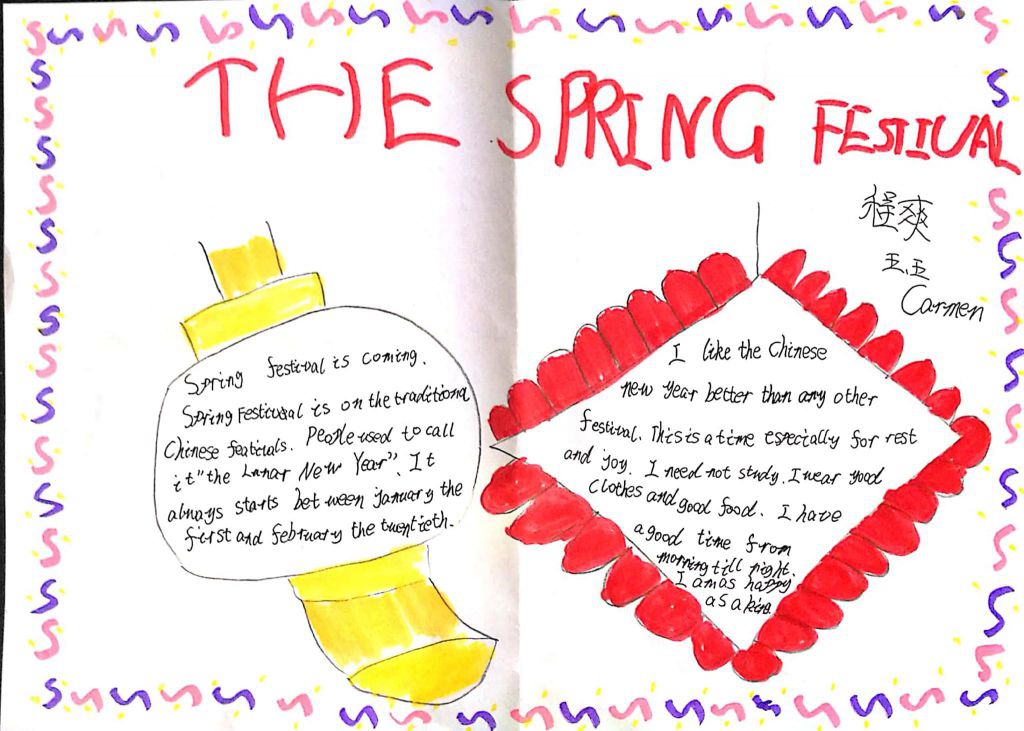 THE SPRING FESTIVAL
程爽
五.五
Carmen
Spring festival is coming.
Spring Festivusal is on the traditiona
Chinese feativals. People used to call
it "the Lanar New Year". It
always starts between january the
first and february the twentieth.
I like the Chinese
new year better than any other
festival. This is a time especially for rest
and joy. I need not study. I wear good
clothes and good food. I have
a good time from
morning till night.
I am as happy
as a king.